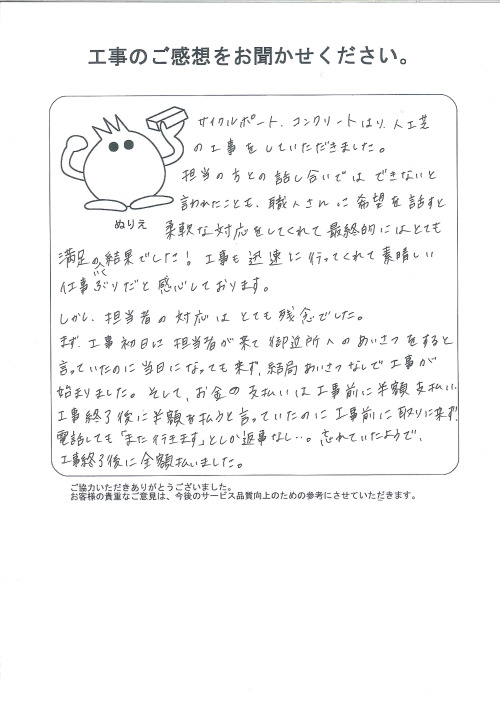 工事のご感想をお聞かせください。
サイクルポート、コンクリートはり、人工芝
の工事をしていただきました。
担当の方との話し合いでは できないと
言われたことも、職人さんに希望を話すと
ぬりえ
柔軟な対応をしてくれて最終的にはとても
満足のいく結果でした！ 工事も迅速に行ってくれて素晴しい
仕事ぶりだと感心しております。
しかし、担当者の対応はとても残念でした。
まず、工事初日に担当者が来て御近所へのあいさつをすると
言っていたのに当日になっても来ず、結局あいさつなしで工事が
始まりました。そして、お金の支払いは工事前に半額支払い、
工事終了後に半額を払うと言っていたのに工事前に取りに来ず、
電話しても「また行きます」としか返事なし…。忘れていたようで、
工事終了後に全額払いました。
ご協力いただきありがとうございました。
お客様の貴重なご意見は、今後のサービス品質向上のための参考にさせていただきます。